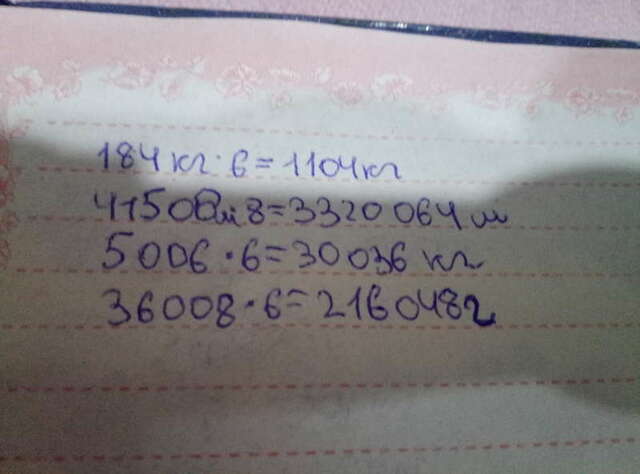 184 кг · 6 = 1104 кг
41508 м 8 = 3320064 м
5006 · 6 = 30036 кг
36008 · 6 = 216048 г